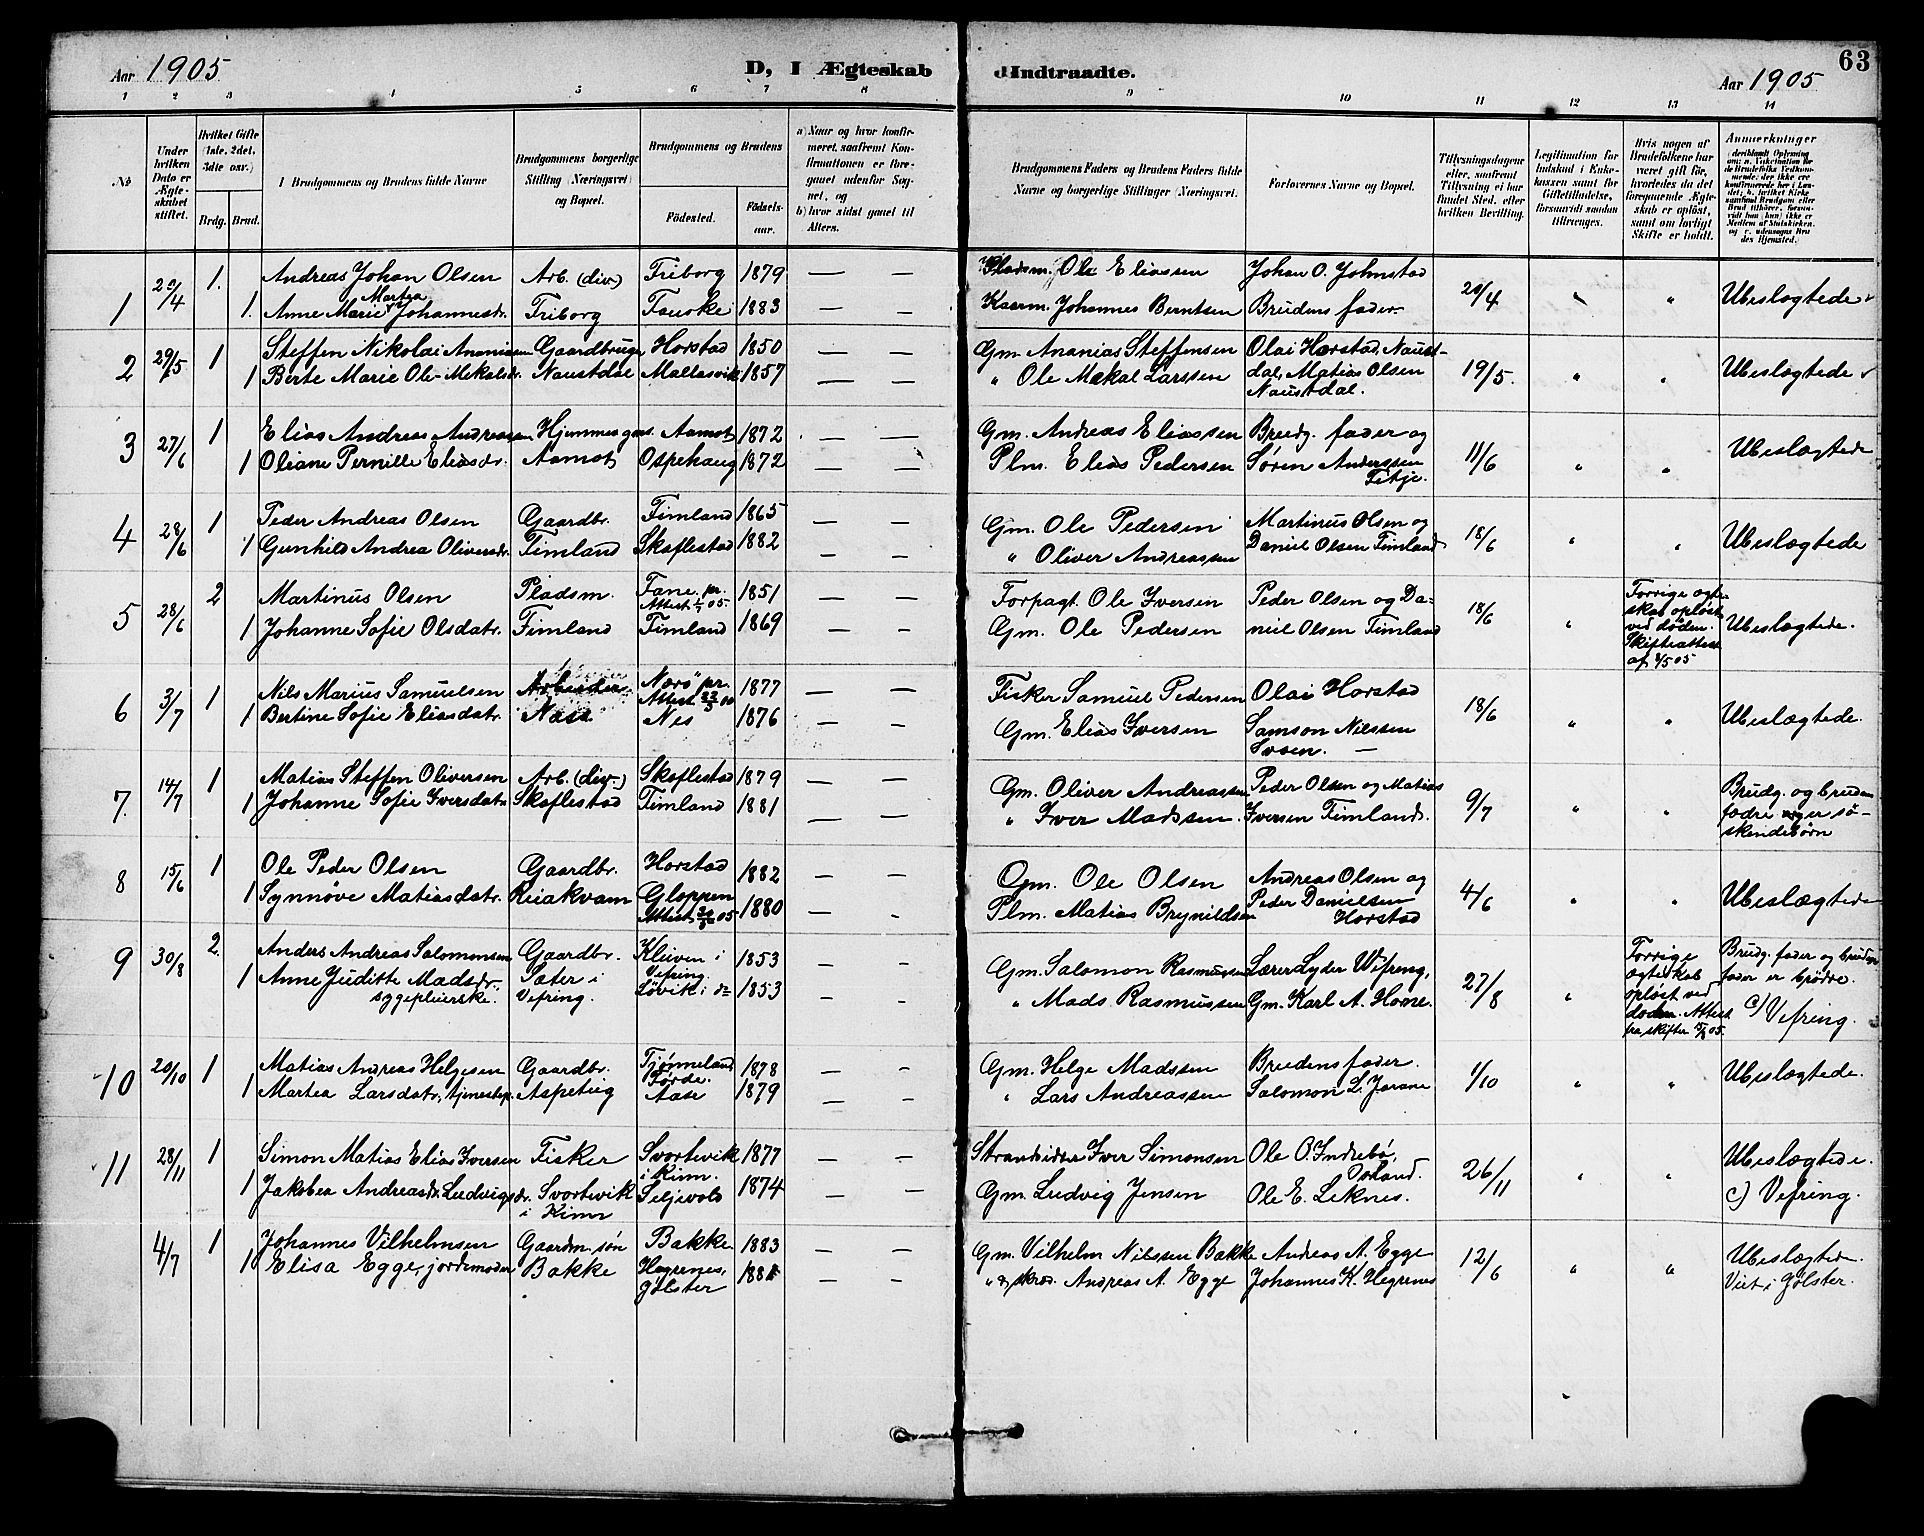 63
Aar 1905
D, I Ægteskab
Indtraadte.
Aar 1905
1 2 3 4 5 6 7 8 9 10 11 12 13 14
No
Under hvilken Dato er Ægteskabet stiftet.
Hvilket Gifte (1ste, 2det, 3die osv.)
Brdg. Brud.
Brudgommens og Brudens fulde Navne
Brudgommens borgerlige Stilling (Næringsvei) og Bopæl.
Brudgommens og Brudens
Fødested.
Fødselsaar.
a) Naar og hvor konfirmeret, saafremt Konfirmationen er foregaaet udenfor Sognet, og
b) hvor sidst gaaet til Alters.
Brudgommens Faders og Brudens Faders fulde Navne og borgerlige Stillinger (Næringsvei).
Forlovernes Navne og Bopæl.
Tillysningsdagene eller, saafremt Tillysning ei har fundet Sted, efter hvilken Bevilling.
Legitimation for Indskud i Enkekassen samt for Giftetilladelse, forsaavidt saadan tiltrænges.
Hvis nogen af Brudefolkene har været gift før, hvorledes da det foregaaende Ægteskab er opløst, samt om lovligt Skifte er holdt.
Anmerkninger
1 20/4 1. Andreas Johan Olsen Arb. (div) Friborg 1879 — — Pladsm. Ole Eliassen Johan O. Johnstad 20/4 " " Ubeslægtede
Martea
1. Anne Marie Johannesdr. Friborg Fauske 1883 — — Kaarm. Johannes Berntsen Brudens fader.
2 29/5 1 Steffen Nikolai Ananiassen Gaardbruger Horstad 1850 — — Gm. Ananias Steffensen Olai Horstad, Naust-
1 Berte Marie Ole-Mekalsdr. Naustdal Mallasvik 1857 — — " Ole Mekal Larssen dal, Matias Olsen 19/5. " " Ubeslægtede
Naustdal.
3 27/6 1 Elias Andreas Andreassen Hjemmes gm s. Aamot 1872 — — Gm. Andreas Eliassen Brudg. fader og
1 Oliane Pernille Eliasdr. Aamot Ospehaug 1872 — — Plm. Elias Pedersen Søren Anderssen 11/6 " " Ubeslægtede
Fitje.
4 28/6 1 Peder Andreas Olsen Gaardbr. Fimland 1865 — — Gm. Ole Pedersen Martinus Olsen og
1 Gunhild Andrea Oliversdr. Fimland Skoflestad 1882 — — " Oliver Andreassen Daniel Olsen Fimland 18/6 " " Ubeslægtede
5 28/6 2 Martinus Olsen Pladsm. Fane pr. 1851 — — Forpagt. Ole Iversen Peder Olsen og Da-
Attest 1/5 05.
1 Johanne Sofie Olsdatr. Fimland Fimland 1869 — — Gm. Ole Pedersen niel Olsen Fimland 18/6 "
Forrige ægte-
skab opløst
ved døden.
Skifteattest
af 2/5 05
Ubeslægtede.
6 3/7 1 Nils Marius Samuelsen Arbeider Nærø pr. 1877 — — Fisker Samuel Pedersen Olai Horstad 18/6
1 Bertine Sofie Eliasdatr. Næss Nes 1876 — — Gm. Elias Iversen Samson Nilssen " " Ubeslægtede.
Svoen. —
7. 14/7 1 Matias Steffen Oliversen Arb. (div) Skoflestad 1879 — — Gm. Oliver Andreassen Peder Olsen og Matias
1 Johanne Sofie Iversdatr. Skoflestad Fimland 1881 — — " Iver Madssen. Iversen Fimland. 9/7 " "
Brudg. og brudens
fædre er sø-
skendebørn
8 15/6 1 Ole Peder Olsen Gaardbr. Horstad 1882 — — Gm. Ole Olsen Andreas Olsen og
1 Synnøve Matiasdatr. Reiakvam Gloppen 1880 — — Plm. Matias Brynildsen Peder Danielsen 4/6 " " Ubeslægtede
Horstad
9 30/8 2. Anders Andreas Salomonsen Gaardbr. Kleiven i 1853 — — Gm. Salomon Rasmussen Lærer Lyder Vefring,
Vefring.
1 Anne Juditte Madsdr. Sæter i Løvik i do 1853 — — " Mads Rasmussen Gm. Karl A. Horne. 27/8 "
sygepleierske. Vefring.
Forrige
ægteskab
opløst ved
døden. Attest
fra skifter
Brudg. fader og brudens
fader er brødre.
c) Vefring.
10 20/10 1 Matias Andreas Helgesen Gaardbr. Tjønneland 1878 — — Gm. Helge Madssen Brudens fader.
Førde.
1 Martea Larsdatr, tjenestep. Aspeteig Aase 1879 — — " Lars Andreassen Salomon L. Jorane 1/10 " " Ubeslægtede.
11 28/11 1 Simon Matias Elias Iversen Fisker Svortevik 1877 — — Strandsidder Iver Simonsen Ole O. Indrebø,
i Kinn.
1 Jakobea Andreasdr. Ludvigsdr. Svortevik Seljevold 1874 — — Gm. Ludvig Jensen Ole E. Leknes. 26/11 " "
i Kinn
Ubeslægtede.
c) Vefring.
4/7 1 Johannes Vilhelmsen Gaardm. søn Bakke. 1883 — — Gm. Vilhelm Nilssen Bakke Andreas A. Egge
1 Elisa Egge, jordemoder Bakke Hegrenes, 1881 — — " & skræd. Andreas A. Egge Johannes K. Hegrenes 12/6 " "
Jølster
Ubeslægtede.
Viet i Jølster.